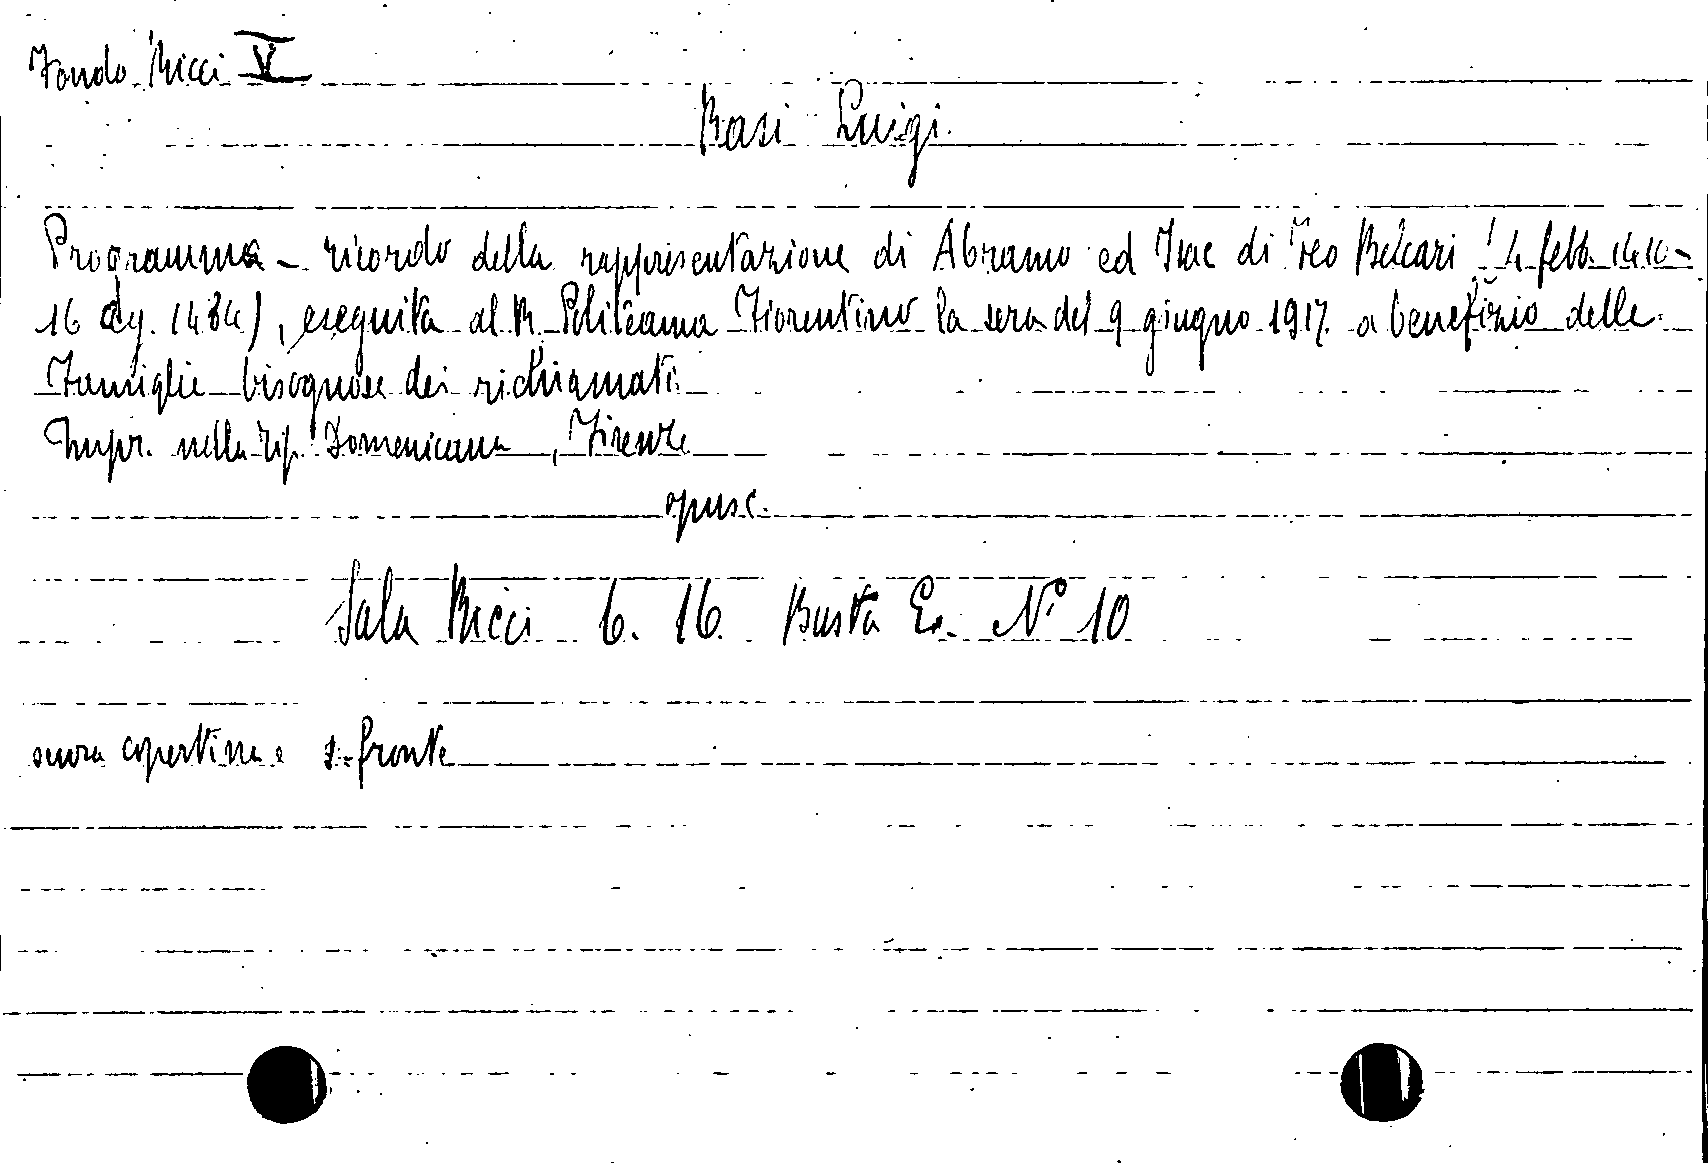 Fondo Ricci V
Rasi Luigi
Programma - ricordo della rappresentazione di Abramo ed Isac di Feo Belcari (4 febb. 1410-
16 ag. 1484), eseguita al R. Politeama Fiorentino la sera del 9 giugno 1917 a benefizio delle
Famiglie bisognose dei richiamati
Impr. nella Tip. Domenicana, Firenze
opusc.
Sala Ricci 6. 16. Busta N° 10
senza copertina e s. fronte